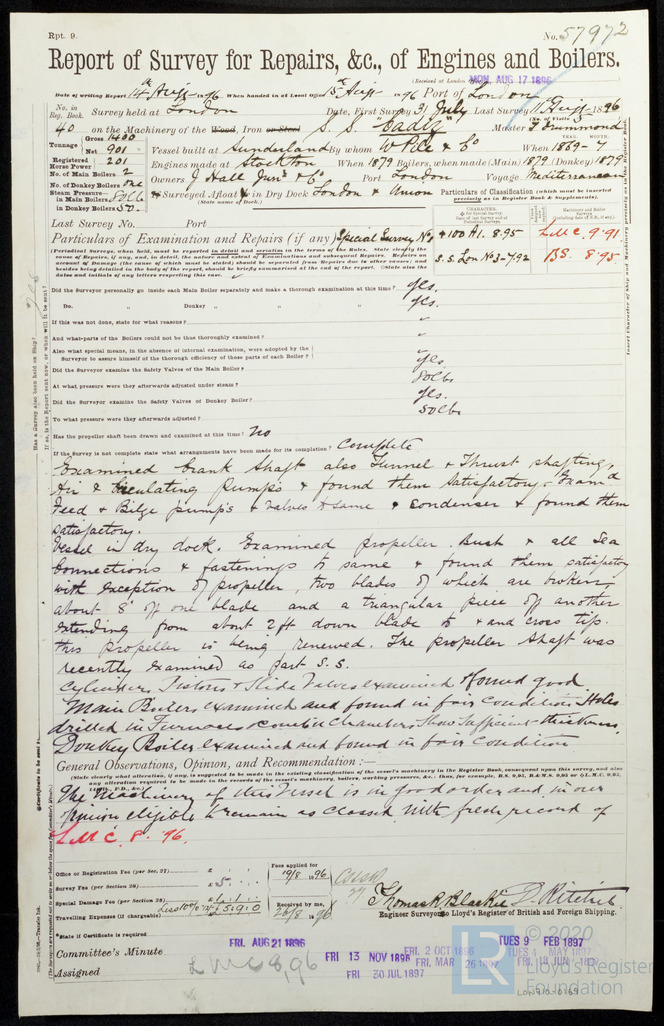 Rpt. 9.
No. 57972
Report of Survey for Repairs, &c., of Engines and Boilers.
(Received at London MON. AUG 17 1896
Date of writing Report 14th Aug 1896 When handed in at Local Office 15th Aug 1896 Port of London
No. in Reg. Book. Survey held at London Date, First Survey 31 July Last Survey 11 Aug 1896
(No. of Visits 5)
40 on the Machinery of the Wood, Iron or Steel S. S. "Cadiz" Master Drummond
Tonnage Gross 1480
Net 901
Vessel built at Sunderland By whom W Pile & Co When 1869-7
YEAR. MONTH.
Registered Horse Power 201
Engines made at Stockton When 1879 Boilers, when made (Main) 1879 (Donkey) 1879
No. of Main Boilers 2
Owners J Hall Junr & Co Port London Voyage Mediterranean
No. of Donkey Boilers One
Steam Pressure in Main Boilers 80lb
in Donkey Boilers 50
Surveyed Afloat & in Dry Dock London & Union
(State name of Dock.)
Particulars of Classification (which must be inserted precisely as in Register Book & Supplements).
Last Survey No. Port
Particulars of Examination and Repairs (if any) Special Survey No
CHARACTER.
Machinery and Boiler Surveys
+100 A1. 8.95
L.M.C. 9.91
S.S. Lon No 3-7.92
B.S. 8.95
Did the Surveyor personally go inside each Main Boiler separately and make a thorough examination at this time? Yes.
Do. " Donkey " " Yes.
If this was not done, state for what reasons? "
And what parts of the Boilers could not be thoroughly examined? "
Also what special means, in the absence of internal examination, were adopted by the Surveyor to assure himself of the thorough efficiency of those parts of each Boiler? "
Did the Surveyor examine the Safety Valves of the Main Boiler? Yes
At what pressure were they afterwards adjusted under steam? 80lbs
Did the Surveyor examine the Safety Valves of Donkey Boiler? Yes.
To what pressure were they afterwards adjusted? 50lbs
Has the propeller shaft been drawn and examined at this time? No
If the Survey is not complete state what arrangements have been made for its completion? Complete
Examined Crank Shaft also Tunnel & Thrust shafting,
Air & Circulating Pumps & found them satisfactory. Examd
Feed & Bilge pumps & valves to same & condenser & found them
satisfactory.
Vessel in dry dock. Examined propeller. Bush & all Sea
Connections & fastenings to same & found them satisfactory
with exception of propeller, two blades of which are broken
about 8" off one blade and a triangular piece off another
extending from about 2ft down blade to end cross tip.
this propeller is being renewed. The propeller shaft was
recently examined as part S.S.
Cylinders Pistons & Slide Valves examined & found good
Main Boilers examined and found in fair condition Holes
drilled in Furnaces & Combn Chambers show sufficient thickness.
Donkey Boiler examined and found in fair condition
General Observations, Opinion, and Recommendation :—
The Machinery of this Vessel is in good order and in our
opinion eligible to remain as classed with fresh record of
L.M.C. 8. 96.
Office or Registration Fee (per Sec. 27)... £
Survey Fee (per Section 28) £5
Special Damage Fee (per Section 28)
Less 10%
Travelling Expenses (if chargeable)
Fees applied for
19/8 1896
Received by me,
20/8 1896
Thomas R. Blackie D. Ritchie
Engineer Surveyors to Lloyd's Register of British and Foreign Shipping.
State if Certificate is required
Committee's Minute FRI. AUG 21 1896
FRI 13 NOV 1896
FRI. 2 OCT 1896
TUES 9 FEB 1897
FRI. MAR 26 1897
TUES 4 MAY 1897
FRI 30 JUL 1897
Assigned LMC 8,96
© 2020
LR
Lloyd's Register
Foundation